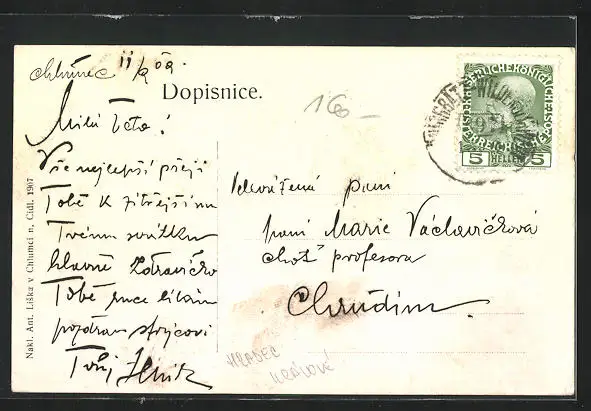 Chlumec 11/9 09.
Dopisnice.
160 –
Milá teto!
Vše nejlepší přeji
Tobě k zítřejšímu
Tvému svátku
hlavně zdravíčko
Tobě ruce líbám
pozdrav strýcovi
Tvůj
Velevážená paní
paní Marie Václavíčková
choť profesora
Chrudim.
HRADEC
KRÁLOVÉ
Nakl. Ant. Liška v Chlumci n. Cidl. 1907
5 HELLER 5